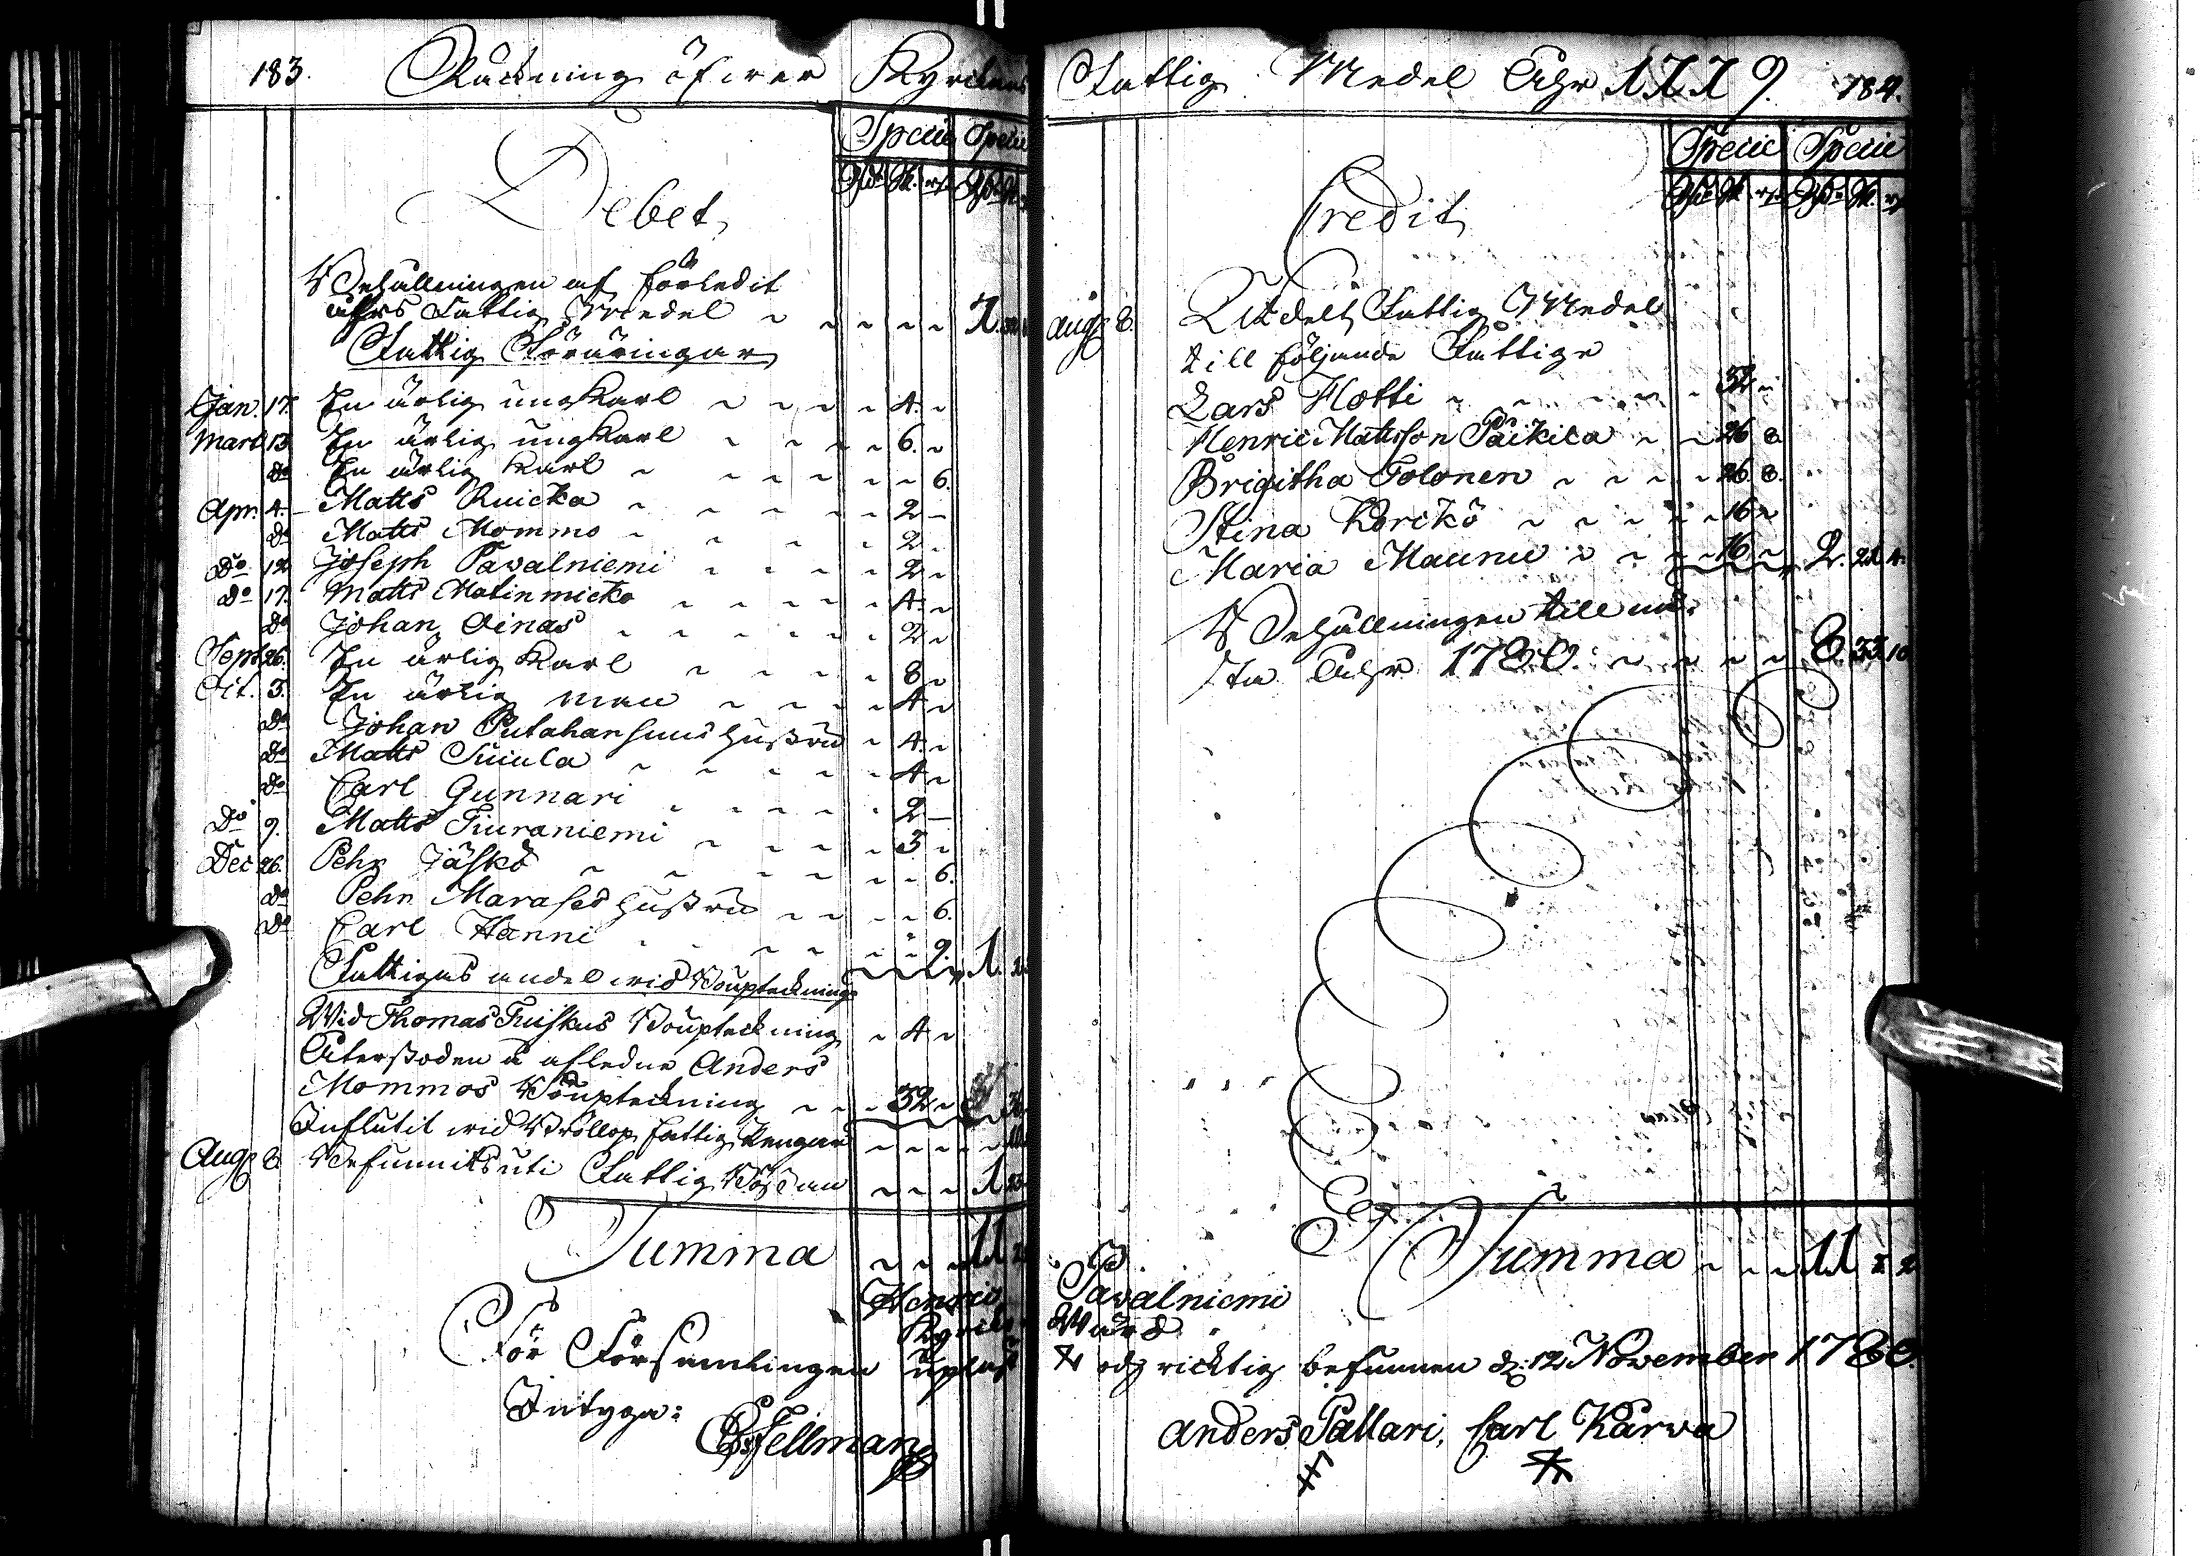 183. Räckning öfwer Kyrckans
Specie Specie
Debet,
Behållningen af förledit
åhrs Fattig Medel
Fattig Föräringar
Jan. 17. En ärlig ungkarl 4.
Mart. 13 En ärlig ungkarl 6.
do En ärlig karl 6.
Apr. 4. Matts Ruicka 2
do Matts Mommo 2
Do 12 Joseph Pavalniemi 2
do 17. Matts Matinmicko 4.
do Johan Oinas 2
Sept. 26. En ärlig karl 8
Oct. 3. En ärlig man 4
do Johan Putahansuus hustru 4.
do Matts Suiula 4
do Carl Gunnari 2
Do 9. Matts Tiuraniemi 3
Dec 26. Pehr Jäskö 6.
do Pehr Marases hustru 6.
do Carl Hanni 9. 1.
Fattigas andel wid Bouptecknings
Wid Thomas Bouptekning 4
Återstoden å afledne Anders
Mommos Bouptekning 32
Influtit wid Bröllop fattig Pengar
Aug. 8 Befunnits uti Fattig Bössan 1
Summa 11
Henric
Kyrcko
För Församlingen upläst
Intyga:
Es. Fellman
Fattig Medel Åhr 1779. 184.
Specie Specie
Credit
Aug. 8. Utdelt Fattig Medel
till följande Fattige
Lars Hotti 32
Henric Mattsson Päikila 26 8
Brigitha Tolonen 26 8.
Stina Korckö 16
Maria Maunu 16 2. 21 4.
Behållningen till
sta Åhr 1780. 8. 33. 10
Summa 11
Pavalniemi
Wärd
och richtig befunnen d: 12 November 1780.
Anders Pallari, Carl Karwa